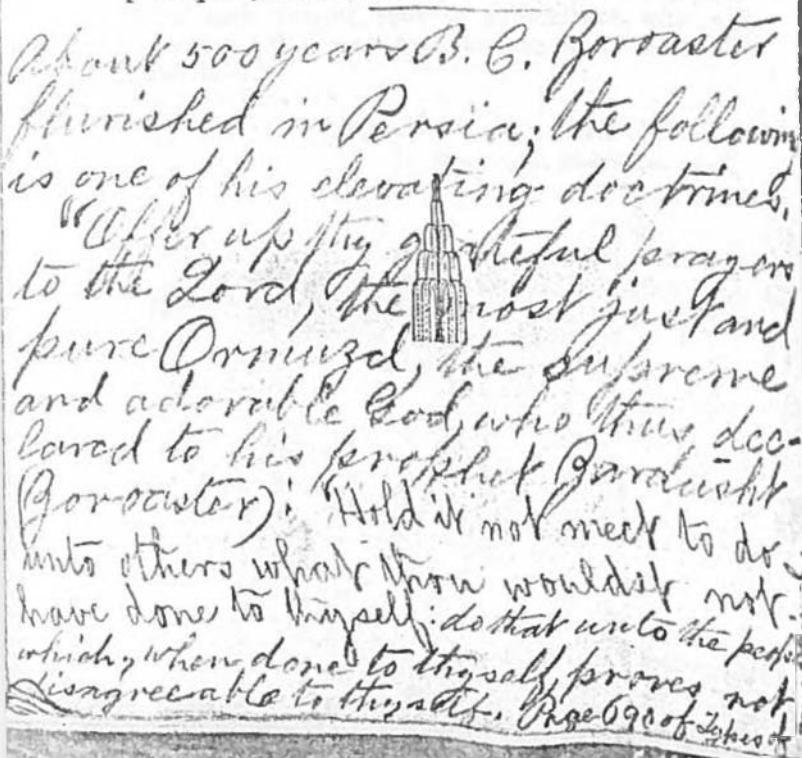 About 500 years B.C. Zoroaster
flurished in Persia; the following
is one of his elevating doctrines.
"Offer up thy grateful prayers
to the Lord, the most just and
pure Ormuzd, the supreme
and adorable God, who thus dec-
lared to his prophet Zardusht
(Zoroaster): 'Hold it not meet to do
unto others what thou wouldst not
have done to thyself: do that unto the people
which, when done to thyself, proves not
disagreeable to thyself. Page 690 of